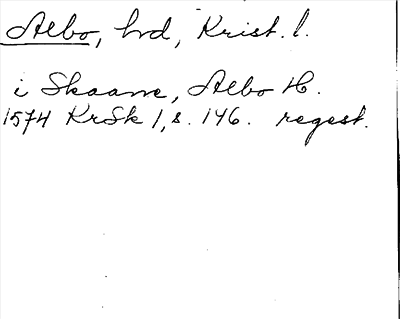 Albo, hrd, Krist. l.
i Skaane, Albo H.
1574 KrSk 1, s. 146. regest.